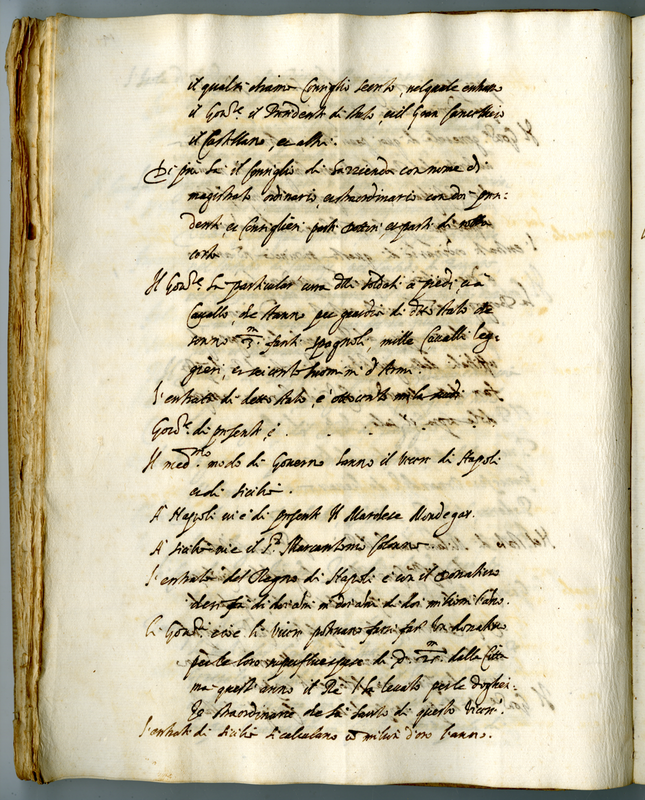 il quale si chiama Consiglio secreto, nel quale entrano
il Gov.re il Presidente di stato, et il Gran Cancelliero
il Castellano, et altri.
Di più ha il Consiglio di hazzienda con nome di
magistrato ordinario, et straordinario con doi presi-
denti, et Consiglieri parte dottori, et parte di
corta
Il Gov.re ha particular cura delli soldati à piedi, et à
Cavallo, che stanno per guardia di detto stato che
sonno 3 fanti spagnoli, mille Cavalli leg-
gieri, et huomini d'Armi
L'entrata di detto stato, è ottocento mila scudi
Gov.re di presente, è . . .
Il med.mo modo di Governo hanno il Vicere di Napoli
et di Sicilia.
A' Napoli vi è di presente il Marchese Mondegar.
A' Sicilia vi è il S.r Marcantonio Colonna
L'entrata del Regno di Napoli è con il Donativo
che si fà di doi anni in doi anni di doi milioni l'anno.
Li Gov.ri cioè li Vicere potevano farsi far un donativo
per le loro spese di d. 25 dalla Città
ma quest'anno il Rè l'ha levato per le
straordinarie che hà fatto di questo Vicere.
L'entrate di Sicilia si calculano un milion d'oro l'anno.